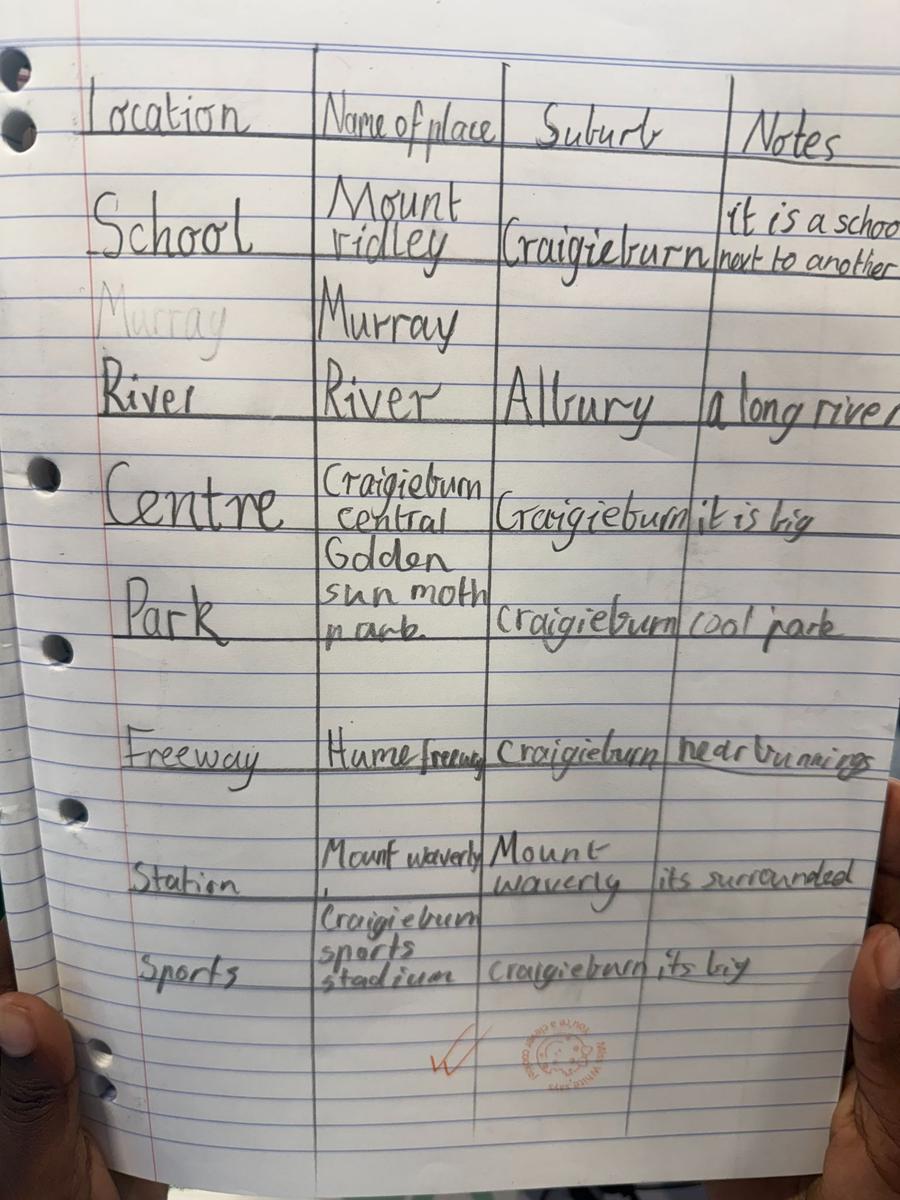 Location Name of place Suburb Notes
Mount
School ridley Craigieburn it is a schoo
next to another
Murray Murray
River River Albury a long river
Craigieburn
Centre central Craigieburn it is big
Golden
sun moth
Park park. Craigieburn cool park
Freeway Hume freeway Craigieburn near bunnings
Mount waverly Mount
Station waverly its surrounded
Craigieburn
sports
Sports stadium craigieburn its big
Miss White says